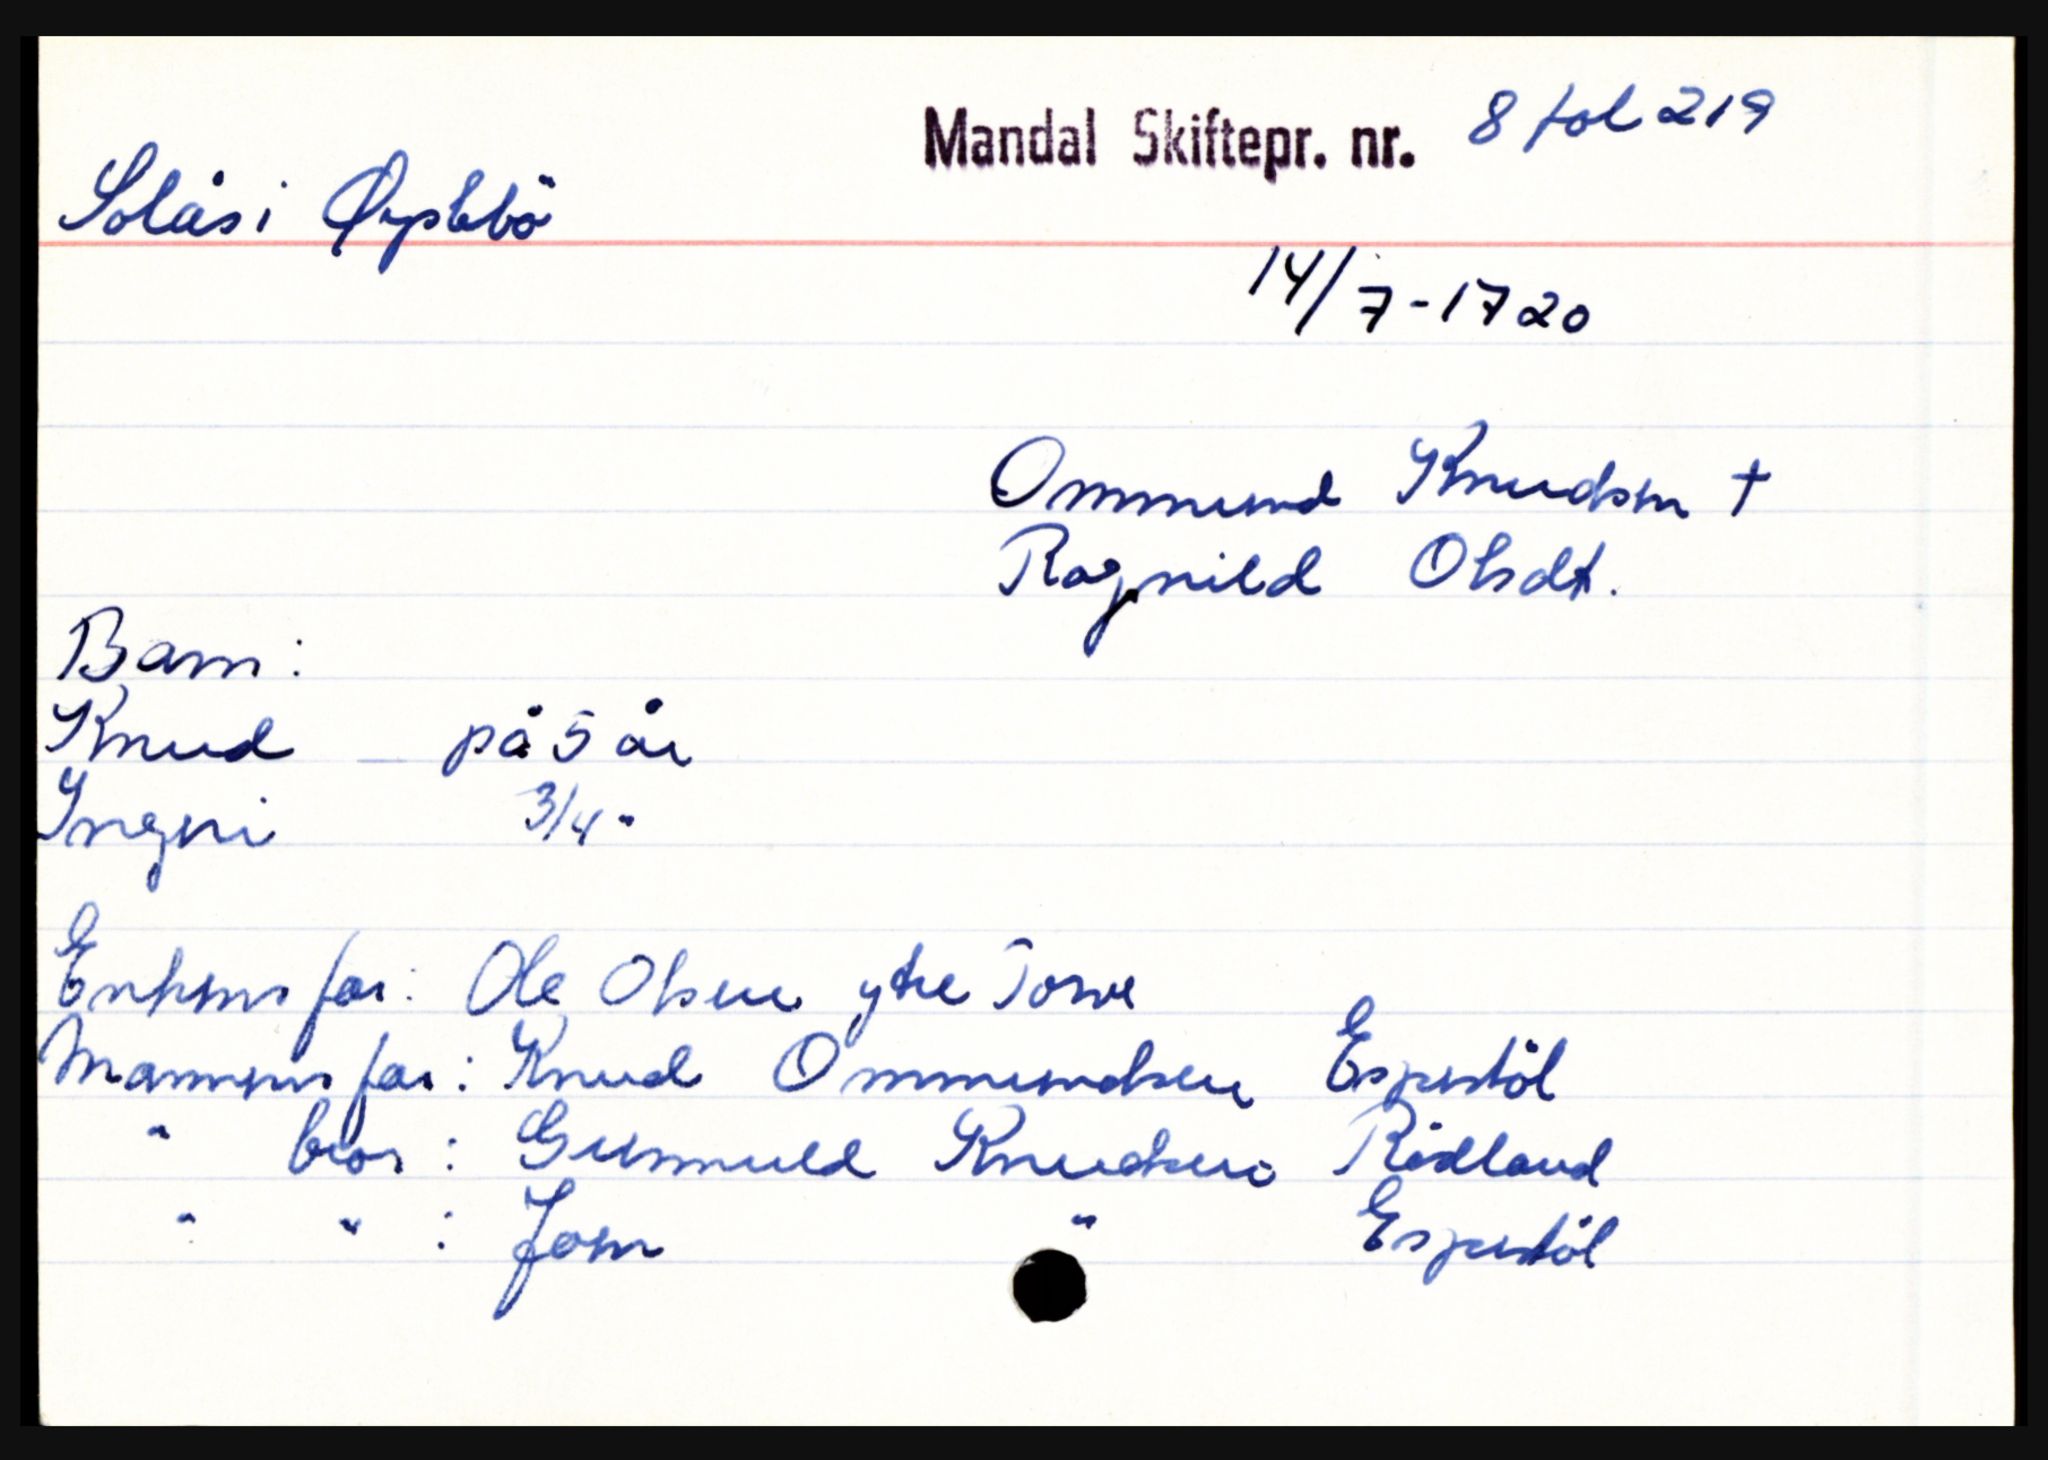 Mandal Skiftepr. nr. 8 fol 219
Solås i Øyslebö
14/7-1720
Ommund Knudsen †
Ragnild Olsdt.
Barn:
Knud — på 5 år
Ingeri 3/4 "
Enkens far: Ole Olsen ytre Torve
Mannens far: Knud Ommundsen Espestöl
" bror: Gunnuld Knudsen Rödland
" " : Jon " Espestöl